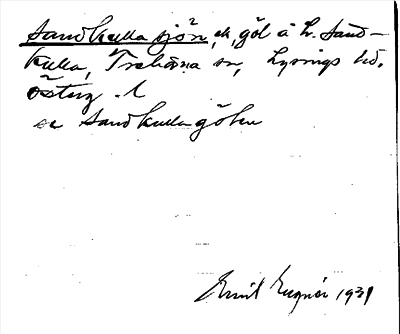 Sandkullasjön, ek, göl å h. Sand-
kulla, Trehörna sn, Lysings hd.
Österg. l
se Sandkullagölen
Emil 1931